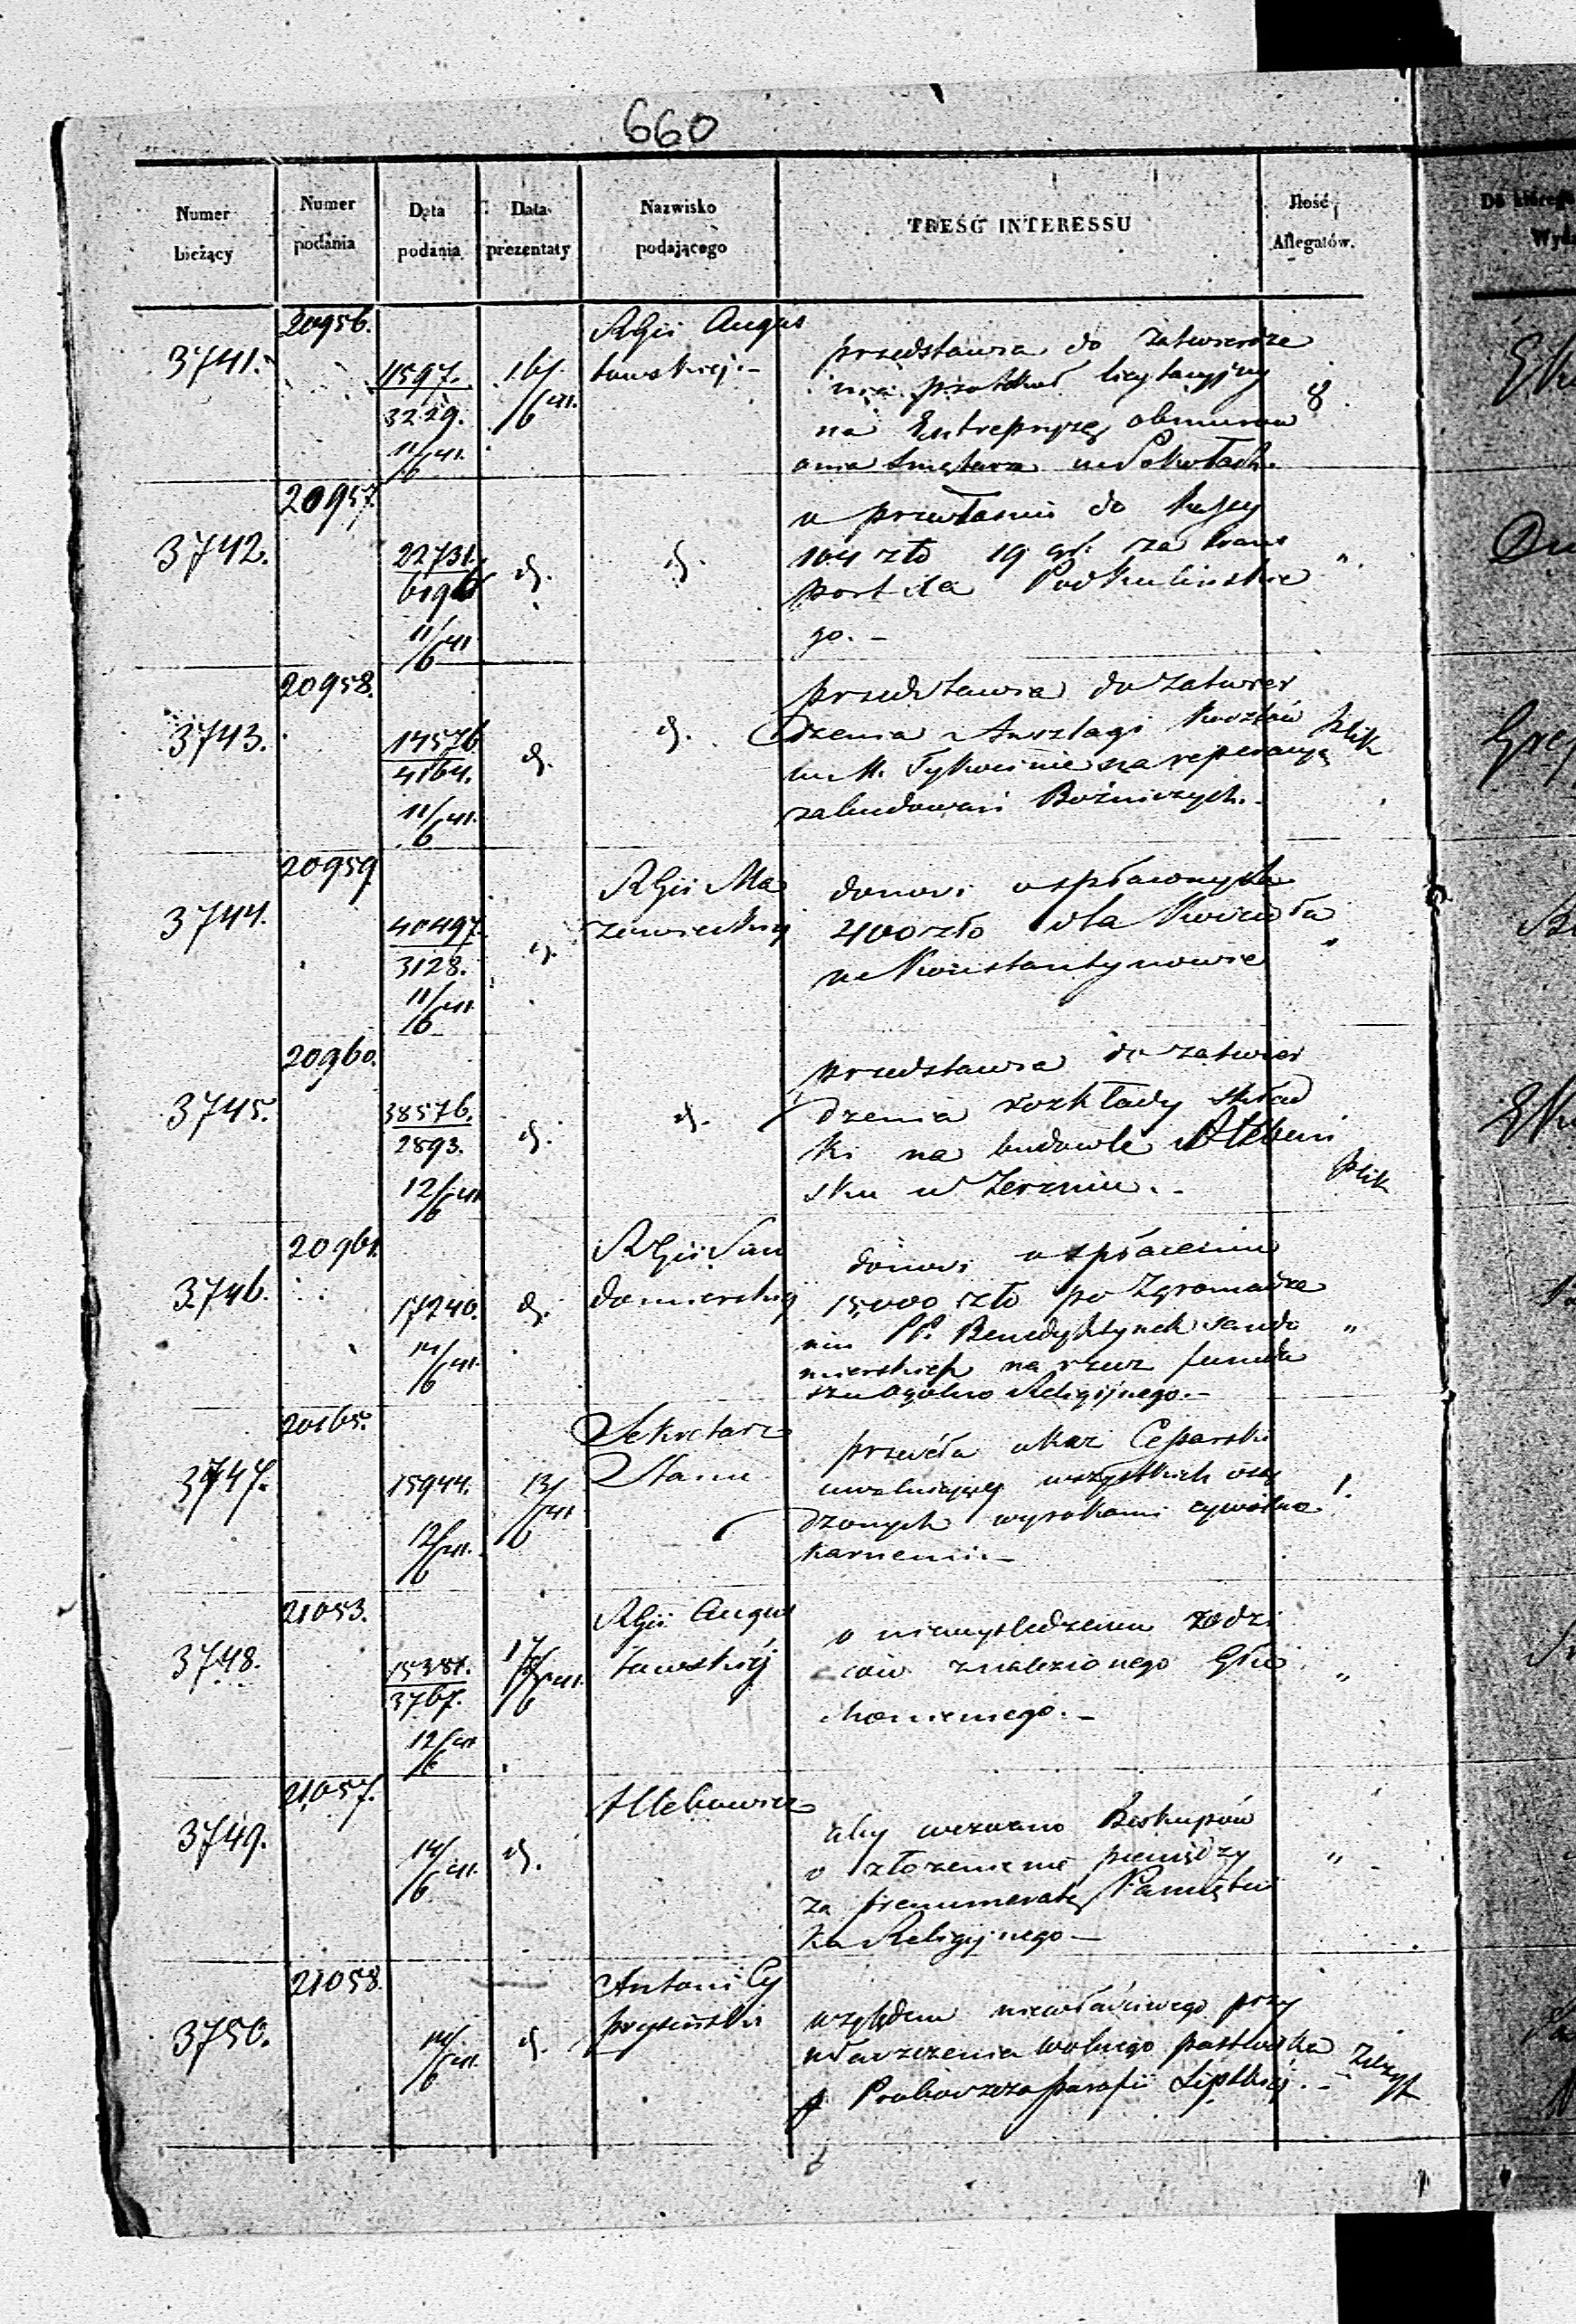 660
Numer bieżący | Numer podania | Data podania | Data prezentaty | Nazwisko podającego | TREŚĆ INTERESSU | Jlość Allegatów.
Do którego
Wydz
20956.
3741.
11597.
3229.
11/6 41.
16/6 41.
RGii Augus
towskiej.-
przedstawia do zatwierdze
nia protokuł licytacyjny
na Entrepryzę obmurow
ania Smętarza w Sokołach.
8.
20957.
3742.
22731.
6196
11/6 41
d.
d.
o przesłaniu do Kassy
104 zło 19 gr. za trans
port dla Podkulińskie
go. -
".
20958.
3743.
14576
4164.
11/6 41.
d.
d.
przedstawia do zatwier
dzenia Anszlagi kosztów
w M. Tykocinie na reperacyą
zabudowań Bóżniczych.-
plik
20959
3744.
40497.
3128.
11/6 41.
d.
RGii Ma
zowieckiej
donosi o
400 zło dla Kościoła
w Konstantynowie
"
20960.
3745.
38576.
2893.
12/6 41
d.
d.
przedstawia do zatwier
dzenia rozkłady skład
ki na budowle Plebań
sku w Zerzniu. -
plik
20961.
3746.
17240.
14/6 41.
d.
RGii San
domierskiej
donosi o spłaceniu
15,000 zło po Zgromadze
niu PP. Benedyktynek Sando
mierskich na rzecz fundu
szu Ogólno Religijnego.-
"
20165.
3747.
15944.
12/6 41.
13/6 41
Sekretarz
Stanu
przesyła ukaz Cesarski
uwalniający wszystkich osą
dzonych wyrokami cywilno
karnemi.-
1.
21053.
3748.
15381.
3767.
12/6 41
RGii Augus
towskiej
o niewyśledzeniu rodzi
ców znalezionego Głu
choniemego. -
"
21057.
3749.
14/6 41.
d.
Mlekowicz
aby wezwano Biskupów
o złożenie pieniędzy
za prenumeratę Pamiętni
ka Religijnego -
"
21058.
3750.
14/6 41.
d.
Antoni Cy
prysiński
względem niewłaściwego przy
właszczenia wolnego pastwiska
p Proboszcza parafii Lipskiej. -